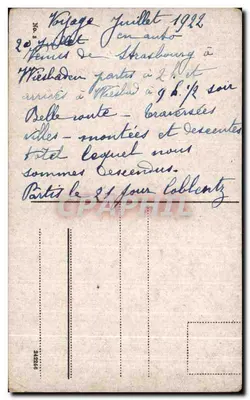 Voyage Juillet 1922
20 Juillet en auto
Venus de Strasbourg à
Wiesbaden partis à 2h et
arrivés à Wiesbad à 9h 1/2 soir
Belle route - traversées
villes - montées et descentes
Hotel lequel nous
sommes descendus.
Partis le 21 pour Coblentz